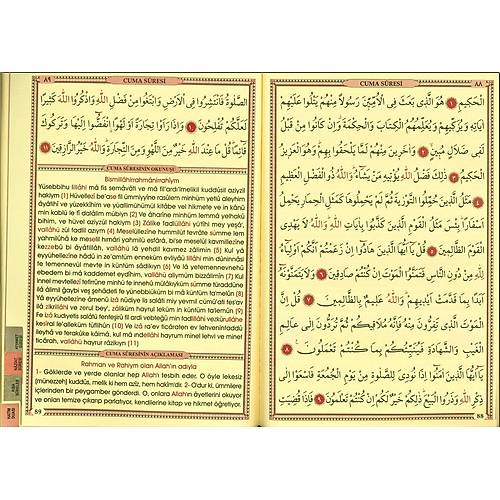 CUMA SÛRESİ ٨٨
الْحَكِيمِ ﴿١﴾ هُوَ الَّذِي بَعَثَ فِي الْأُمِّيِّينَ رَسُولًا مِنْهُمْ يَتْلُوا عَلَيْهِمْ
اٰيَاتِهِ وَيُزَكِّيهِمْ وَيُعَلِّمُهُمُ الْكِتَابَ وَالْحِكْمَةَ وَاِنْ كَانُوا مِنْ قَبْلُ
لَفِي ضَلَالٍ مُبِينٍ ﴿٢﴾ وَاٰخَرِينَ مِنْهُمْ لَمَّا يَلْحَقُوا بِهِمْ وَهُوَ الْعَزِيزُ
الْحَكِيمُ ﴿٣﴾ ذٰلِكَ فَضْلُ اللّٰهِ يُؤْتِيهِ مَنْ يَشَاءُ وَاللّٰهُ ذُو الْفَضْلِ الْعَظِيمِ
﴿٤﴾ مَثَلُ الَّذِينَ حُمِّلُوا التَّوْرٰيةَ ثُمَّ لَمْ يَحْمِلُوهَا كَمَثَلِ الْحِمَارِ يَحْمِلُ
اَسْفَارًا بِئْسَ مَثَلُ الْقَوْمِ الَّذِينَ كَذَّبُوا بِاٰيَاتِ اللّٰهِ وَاللّٰهُ لَا يَهْدِي
الْقَوْمَ الظَّالِمِينَ ﴿٥﴾ قُلْ يَا اَيُّهَا الَّذِينَ هَادُوا اِنْ زَعَمْتُمْ اَنَّكُمْ اَوْلِيَاءُ
لِلّٰهِ مِنْ دُونِ النَّاسِ فَتَمَنَّوُا الْمَوْتَ اِنْ كُنْتُمْ صَادِقِينَ ﴿٦﴾ وَلَا يَتَمَنَّوْنَهُ
اَبَدًا بِمَا قَدَّمَتْ اَيْدِيهِمْ وَاللّٰهُ عَلِيمٌ بِالظَّالِمِينَ ﴿٧﴾ قُلْ اِنَّ
الْمَوْتَ الَّذِي تَفِرُّونَ مِنْهُ فَاِنَّهُ مُلَاقِيكُمْ ثُمَّ تُرَدُّونَ اِلٰى عَالِمِ
الْغَيْبِ وَالشَّهَادَةِ فَيُنَبِّئُكُمْ بِمَا كُنْتُمْ تَعْمَلُونَ ﴿٨﴾
يَا اَيُّهَا الَّذِينَ اٰمَنُوا اِذَا نُودِيَ لِلصَّلٰوةِ مِنْ يَوْمِ الْجُمُعَةِ فَاسْعَوْا اِلٰى
ذِكْرِ اللّٰهِ وَذَرُوا الْبَيْعَ ذٰلِكُمْ خَيْرٌ لَكُمْ اِنْ كُنْتُمْ تَعْلَمُونَ ﴿٩﴾ فَاِذَا قُضِيَتِ
88
٨٩ CUMA SÛRESİ
الصَّلٰوةُ فَانْتَشِرُوا فِي الْاَرْضِ وَابْتَغُوا مِنْ فَضْلِ اللّٰهِ وَاذْكُرُوا اللّٰهَ كَثِيرًا
لَعَلَّكُمْ تُفْلِحُونَ ﴿١٠﴾ وَاِذَا رَاَوْا تِجَارَةً اَوْ لَهْوًا انْفَضُّوا اِلَيْهَا وَتَرَكُوكَ
قَائِمًا قُلْ مَا عِنْدَ اللّٰهِ خَيْرٌ مِنَ اللَّهْوِ وَمِنَ التِّجَارَةِ وَاللّٰهُ خَيْرُ الرَّازِقِينَ ﴿١١﴾
CUMA SÛRESİNİN OKUNUŞU
Bismillâhirrahmânirrahîym
Yüsebbihu lillâhi mâ fis semâvâti ve mâ fil'ardı'lmelikil kuddûsil azîyzil
hakîym (1) Hüvellezî be'ase fil ümmiyyîne rasûlem minhüm yetlû aleyhim
âyâtihî ve yüzekkîhim ve yüallimühümül kitâbe vel hikmete ve in kânû
min kablü le fî dalâlim mübîyn (2) Ve âharîne minhüm lemmâ yelhakû
bihim, ve hüvel azîyzül hakîym (3) Zâlike fadlüllâhi yü'tîhi mey yeşâ',
vallâhü zül fadlil azîym (4) Meselüllezîne hummilüt tevrâte sümme lem
yahmilûhâ ke meselil hımâri yahmilü esfârâ, bi'se meselül kavmillezîne
kezzebû bi âyâtillâh, vallâhü lâ yehdil kavmez zâlimîn (5) Kul yâ
eyyühellezîne hâdû in ze'amtüm enneküm evliyâü lillâhi min dûninnâsi
fe temennevül mevte in küntüm sâdikıyn (6) Ve lâ yetemennevnehû
ebedem bi mâ kaddemet eydîhim, vallâhü alîymüm biz zâlimîn (7) Kul
innel mevtellezî tefirrûne minhü fe innehû mülâkıyküm sümme türaddûne
ilâ âlimil ğaybi veş şehâdeti fe yünebbiüküm bi mâ küntüm ta'melûn (8)
Yâ eyyühellezîne âmenû izâ nûdiye lis salâti miy yevmil cümü'ati fes'av
ilâ zikrillâhi ve zerul bey', zâliküm hayrul leküm in küntüm ta'lemûn (9)
Fe izâ kudıyetis salâtü fenteşirû fil ardı vebteğû min fadlillâhi vezkürullâhe
kesîral le'alleküm tüflihûn (10) Ve izâ ra'ev ticâraten ev lehveninfaddû
ileyhâ ve terakûke kâimâ, kul mâ ındellâhi hayrum minel lehvi ve minet
ticârah, vallâhü hayrur râzikıyn (11)
CUMA SÛRESİNİN AÇIKLAMASI
Rahman ve Rahiym olan Allah'ın adıyla
1- Göklerde ve yerde olanlar hep Allah'ı tesbih eder. O öyle lekesiz
(münezzeh) kuddüs, melik ki hem aziz, hem hakim'dir. 2-O'dur ki, ümmilere
içlerinden bir peygamber gönderdi. O, onlara Allah'ın âyetlerini okuyor
ve onları temize çıkarıp parlatıyor, kendilerine kitap ve hikmet öğretiyor.
89